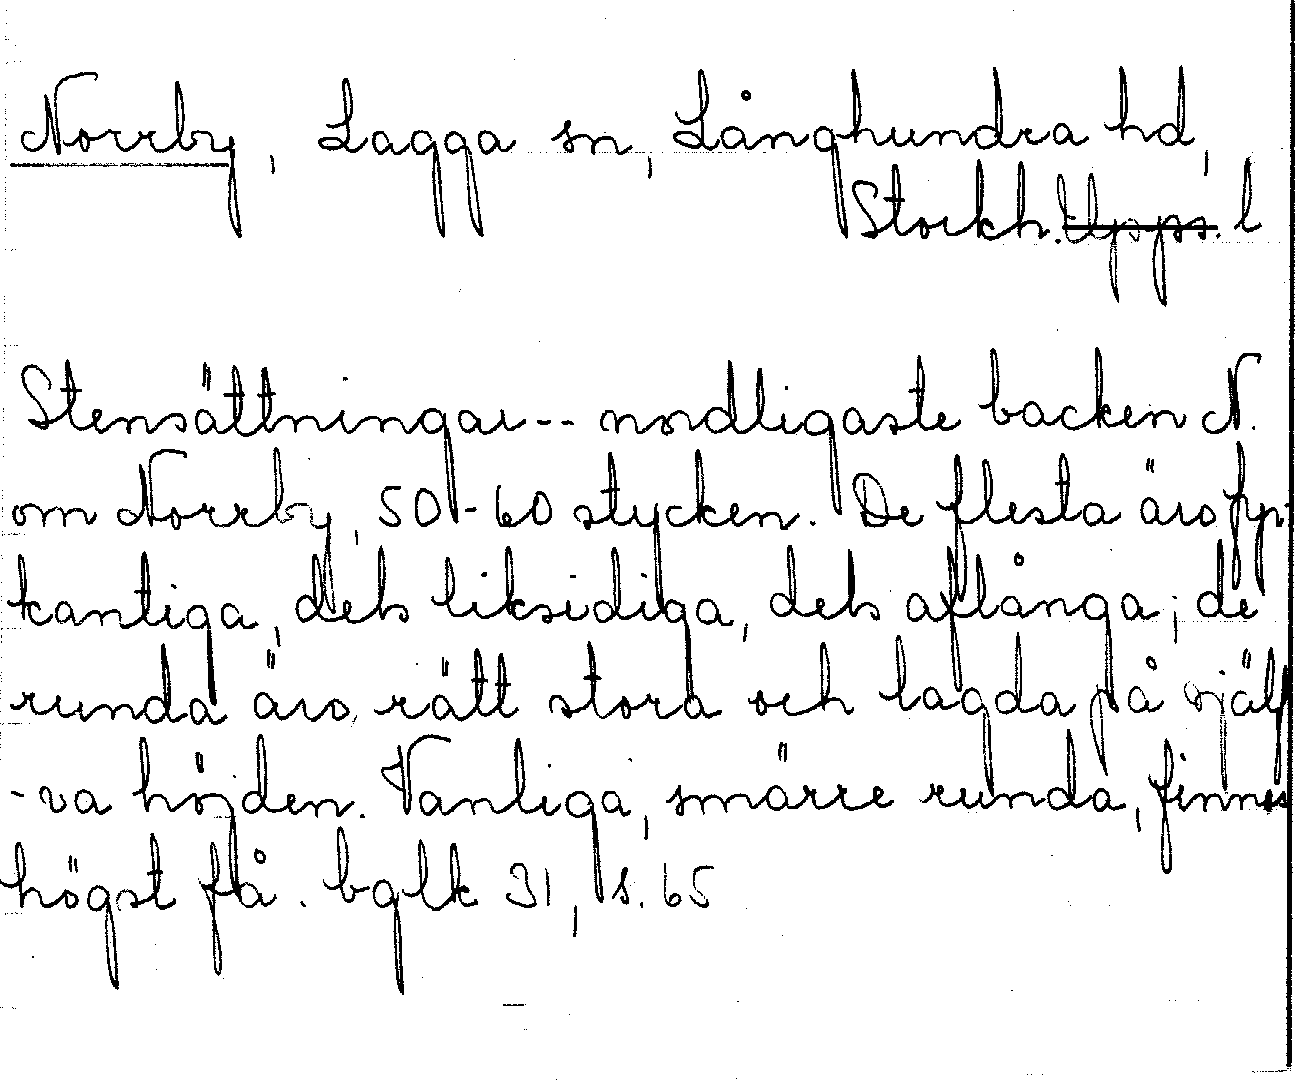 Norrby, Lagga sn, Långhundra hd,
Stockh. Upps. l
Stensättningar-- nordligaste backen N.
om Norrby, 50-60 stycken. De flesta äro fyr-
kantiga, dels liksidiga, dels aflånga; de
runda äro rätt stora och lagda på själf
-va höjden. Vanliga, smärre runda, finnas
högst få. bglk 31, s. 65